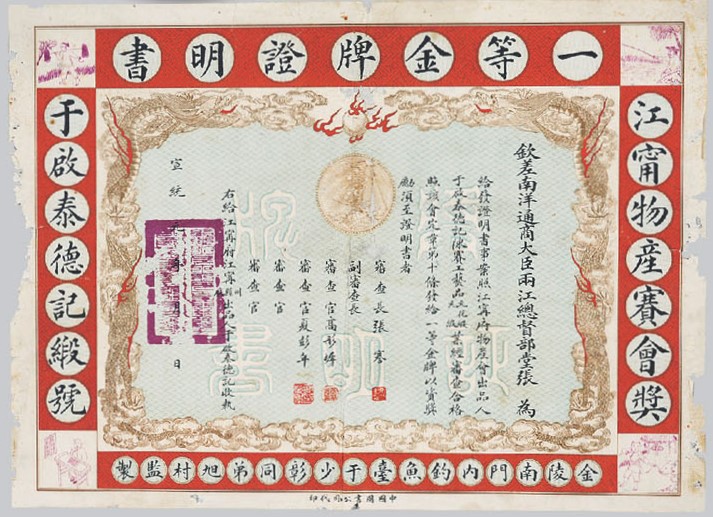 一等金牌證明書
江甯物產賽會獎
欽差南洋通商大臣兩江總督部堂張 為
給發證明書事案照江甯府物產會出品人
于啟泰德記陳賽工藝品 經審查合格
照該會定章第十條發給一等金牌以資獎
勵須至證明書者
審查長張謇
副審查長
審查官
審查官 彭年
審查官
審查官
右給江甯府江甯 出品人于啟泰德記收執
宣統 日
于啟泰德記緞號
金陵南門內釣魚臺于少彰同弟旭村監製
中國圖書公司代印